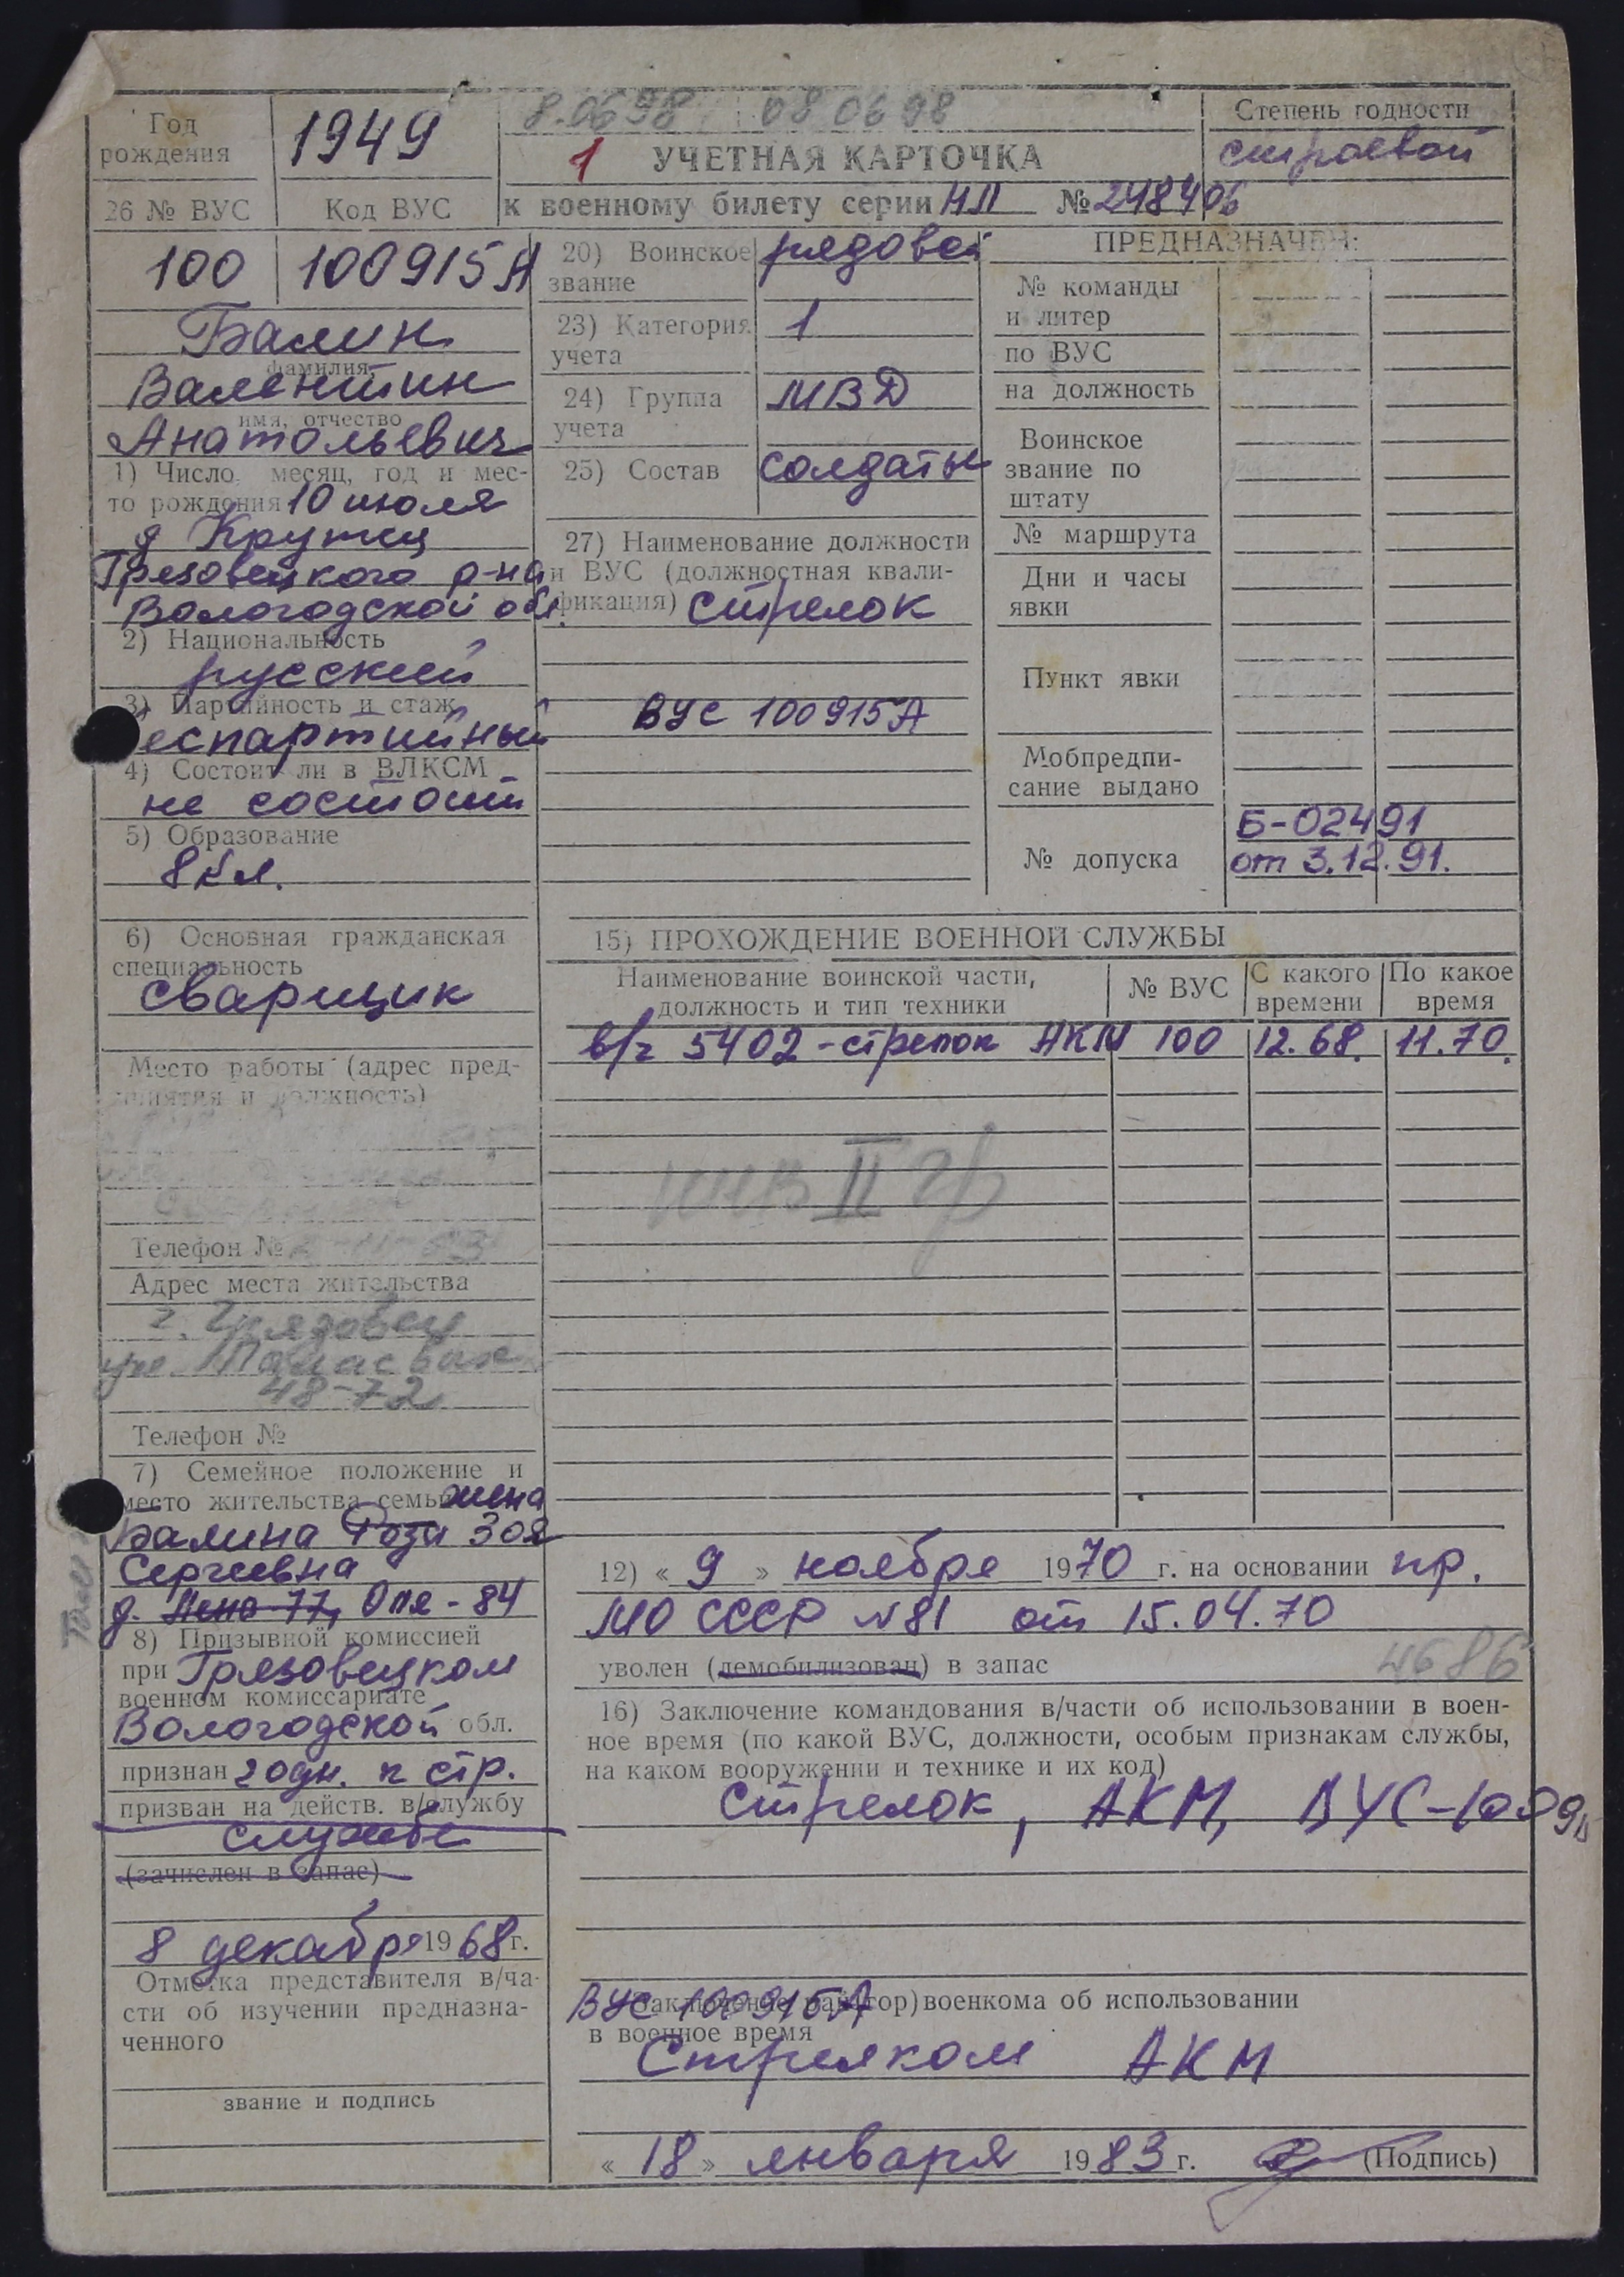 8.06 98 08 06 98
Год рождения
1949
1 УЧЕТНАЯ КАРТОЧКА
к военному билету серии НЛ № 248406
Степень годности
строевой
26 № ВУС
Код ВУС
100
100915А
Балин
фамилия,
Валентин
имя, отчество
Анатольевич
1) Число, месяц, год и мес-
то рождения 10 июля
д Крутец
Грязовецкого р-на
Вологодской обл.
2) Национальность
русский
3) Партийность и стаж
еспартийный
4) Состоит ли в ВЛКСМ
не состоит
5) Образование
8 кл.
6) Основная гражданская
специальность
сварщик
Место работы (адрес пред-
приятия и должность)
Телефон №
Адрес места жительства
г. Грязовец
ул.
48-72
Телефон №
7) Семейное положение и
место жительства семьи жена
Балина Роза Зоя
Сергеевна
д. 77, Оля-84
8) Призывной комиссией
при Грязовецком
военном комиссариате
Вологодской обл.
признан годн. к стр.
призван на действ. в/службу
службе
(зачислен в запас)
8 декабря 1968 г.
Отметка представителя в/ча-
сти об изучении предназна-
ченного
звание и подпись
20) Воинское
звание
рядовой
23) Категория
учета
1
24) Группа
учета
МВД
25) Состав
солдаты
27) Наименование должности
и ВУС (должностная квали-
фикация) Стрелок
ВУС 100915А
ПРЕДНАЗНАЧЕН:
№ команды
и литер
по ВУС
на должность
Воинское
звание по
штату
№ маршрута
Дни и часы
явки
Пункт явки
Мобпредпи-
сание выдано
№ допуска
Б-02491
от 3.12.91.
15) ПРОХОЖДЕНИЕ ВОЕННОЙ СЛУЖБЫ
Наименование воинской части,
должность и тип техники
№ ВУС
С какого
времени
По какое
время
в/ч 5402 - стрелок АКМ 100 12.68. 11.70.
инв II гр
12) « 9 » ноября 1970 г. на основании пр.
МО СССР N81 от 15.04.70
уволен (демобилизован) в запас
16) Заключение командования в/части об использовании в воен-
ное время (по какой ВУС, должности, особым признакам службы,
на каком вооружении и технике и их код)
Стрелок, АКМ, ВУС-1009
ВУС 100915А
Заключение рай(гор)военкома об использовании
в военное время
Стрелком АКМ
« 18 » января 1983 г. (Подпись)